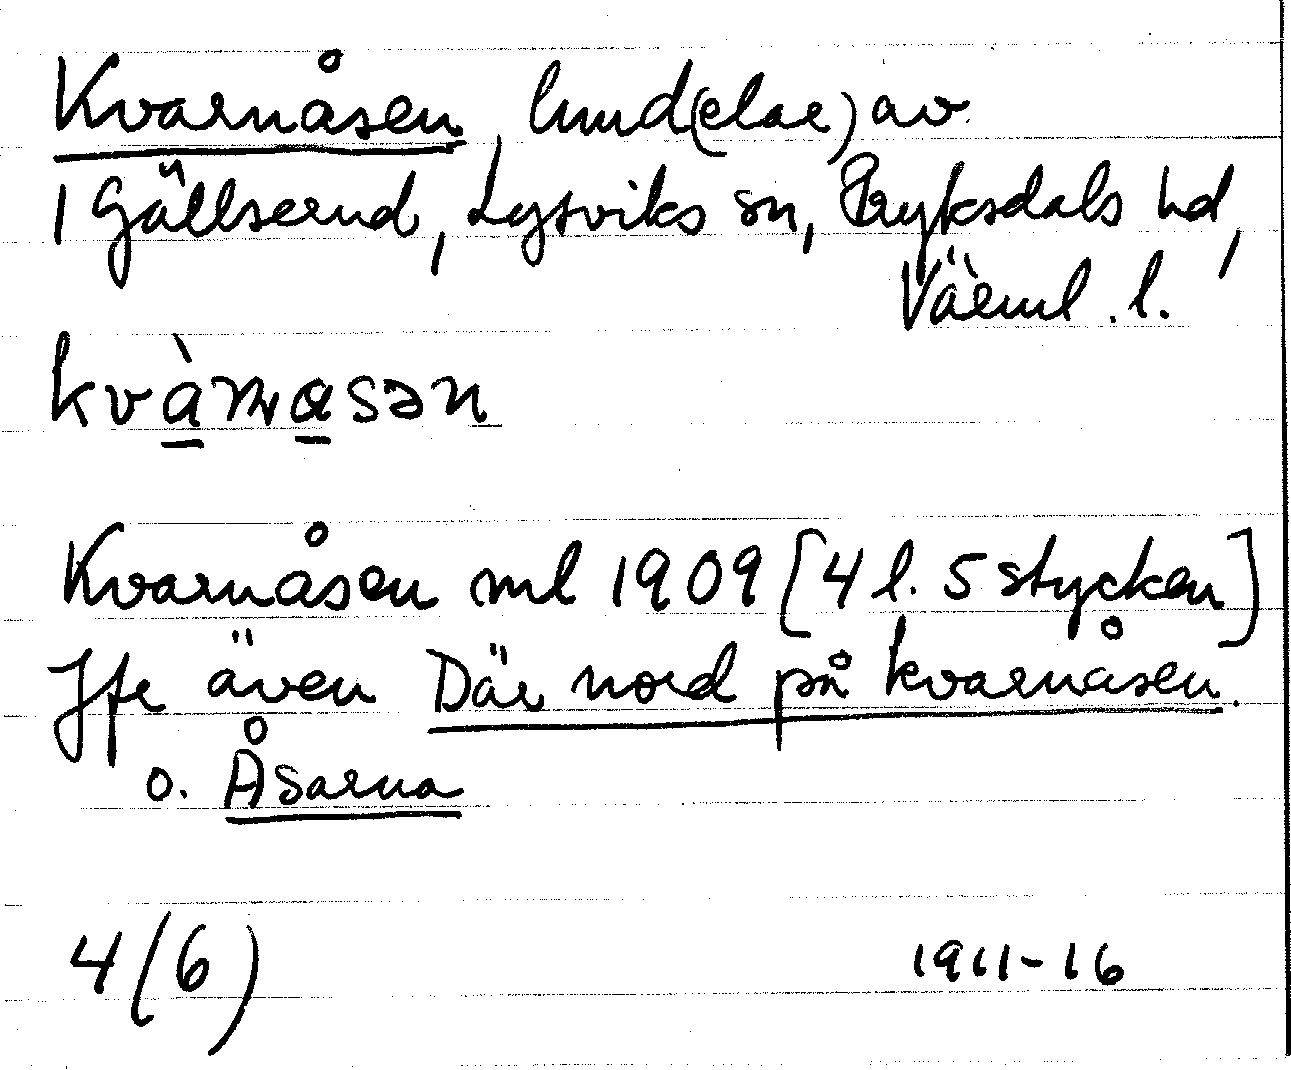 Kvarnåsen, lund(elar) av
1 Gällserud, Lysviks sn, Fryksdals hd,
Värml. l.
Kvarnåsen ml 1909 [4 l. 5 stycken]
Jfr även Där nord på kvarnåsen.
o. Åsarna
4(6) 1911-16